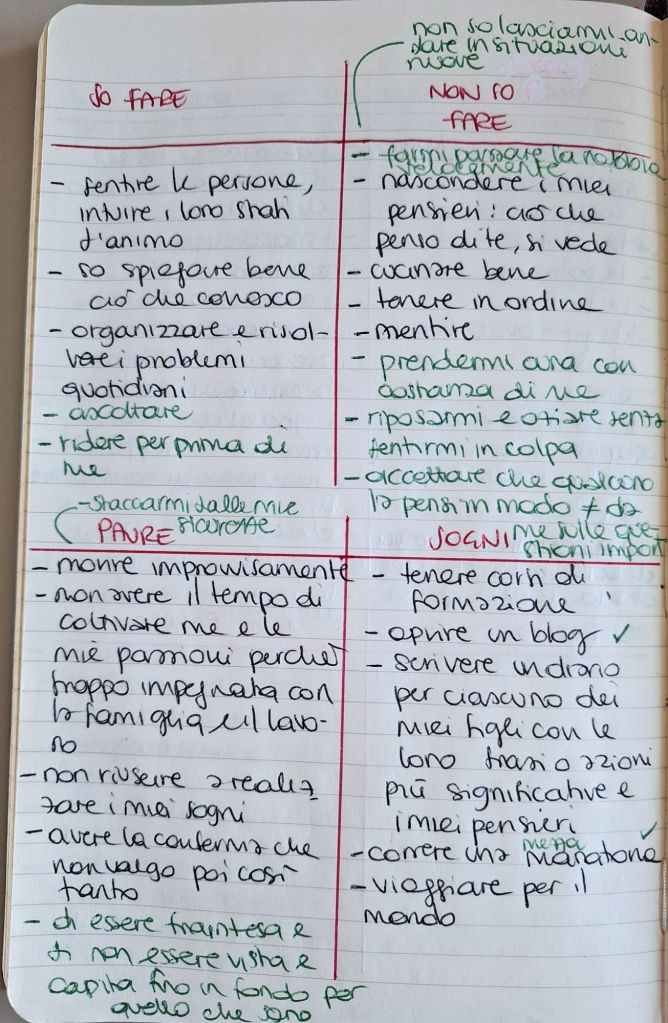 non so lasciarmi an-
dare in situazioni
nuove
SO FARE
- sentire le persone,
intuire i loro stati
d'animo
- so spiegare bene
ciò che conosco
- organizzare e risol-
vere i problemi
quotidiani
- ascoltare
- ridere per prima di
me
NON SO
FARE
- farmi passare la rabbia
velocemente
- nascondere i miei
pensieri: ciò che
penso di te, si vede
- cucinare bene
- tenere in ordine
- mentire
- prendermi cura con
costanza di me
- riposarmi e oziare senza
sentirmi in colpa
- accettare che qualcuno
la pensi in modo ≠ da
me sulle que-
stioni import
- staccarmi dalle mie
sicurezze
PAURE
- morire improvvisamente
- non avere il tempo di
coltivare me e le
mie passioni perché
troppo impegnata con
la famiglia e il lavo-
ro
- non riuscire a realiz
zare i miei sogni
- avere la conferma che
non valgo poi così
tanto
- di essere fraintesa e
di non essere vista e
capita fino in fondo per
quello che sono
SOGNI
- tenere corsi di
formazione
- aprire un blog ✓
- scrivere un diario
per ciascuno dei
miei figli con le
loro frasi o azioni
più significative e
i miei pensieri
- correre una mezza maratona ✓
- viaggiare per il
mondo